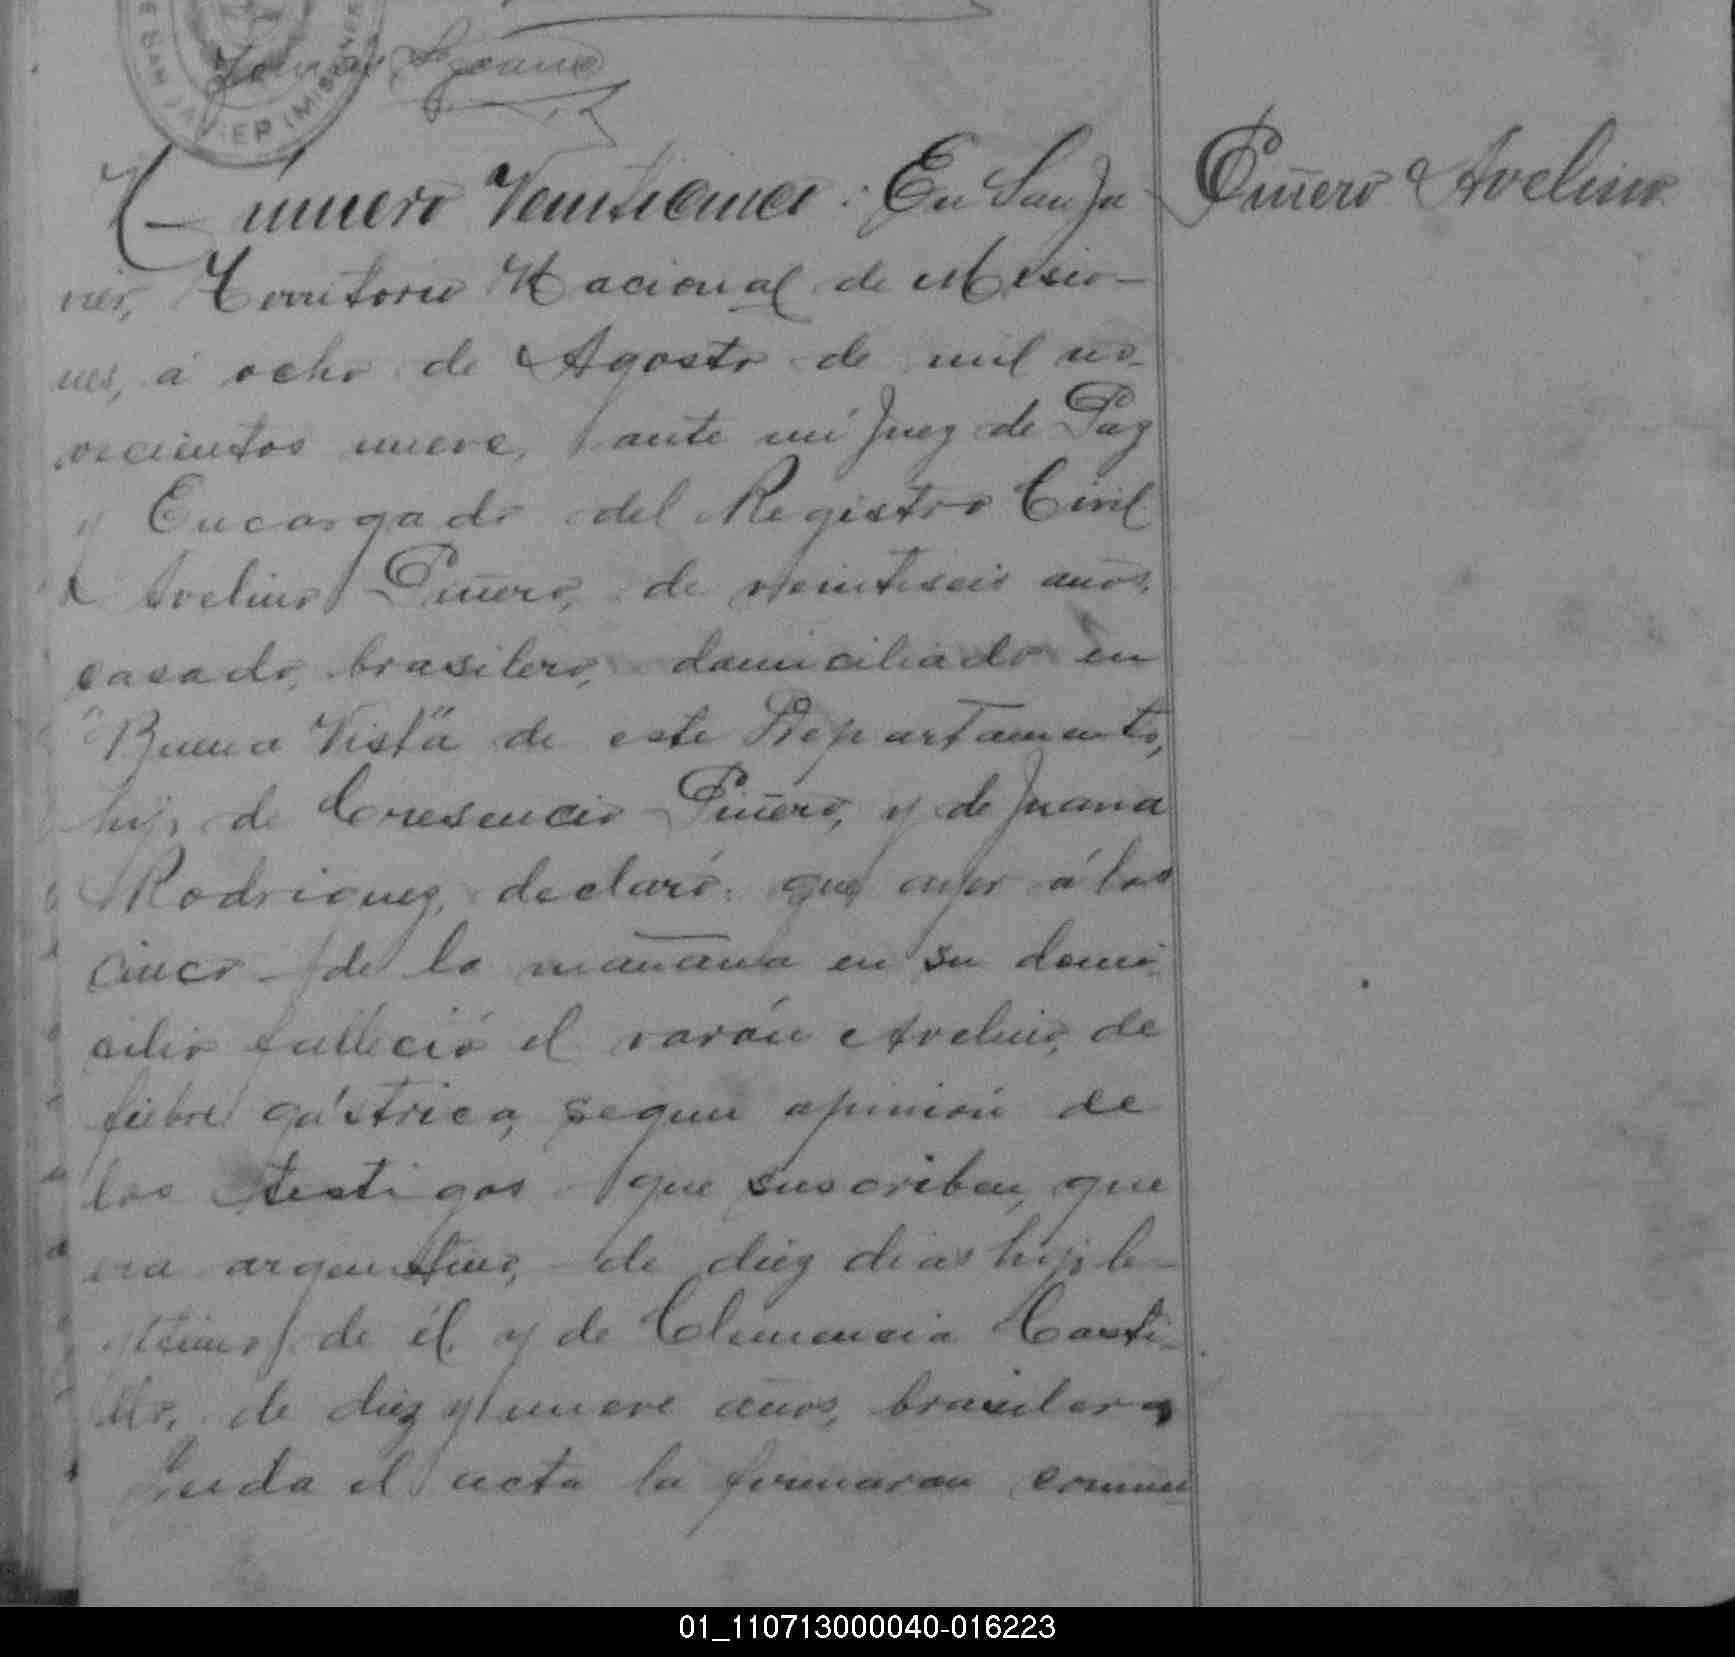 SAN JAVIER (MISIONES
Número Veinticinco: En San Ja
Piñero Avelino
vier, Territorio Nacional de Misio-
nes, á ocho de Agosto de mil no-
vecientos nueve, ante mi Juez de Paz
y Encargado del Registro Civil
Avelino Piñero, de veintiseis años,
casado, brasilero, domiciliado en
"Buena Vista" de este Departamento,
hijo de Cresencio Piñero, y de Juana
Rodriguez, declaró: que ayer á las
cinco de la mañana en su domi-
cilio falleció el varón Avelino, de
fiebre gástrica, segun opinión de
los testigos que suscriben, que
era argentino, de diez dias hijo le-
gitimo de él y de Clemencia Casti-
llo, de diez y nueve años, brasilera
Leida el acta la firmaron conmi
01_110713000040-016223